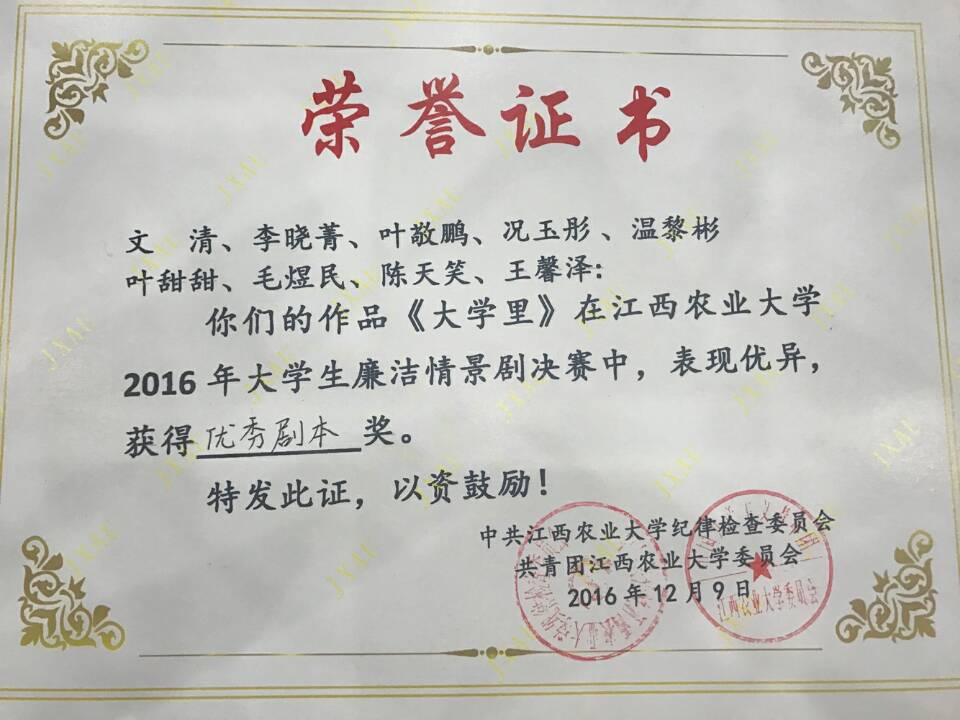 荣誉证书
文 清、李晓菁、叶敬鹏、况玉彤、温黎彬
叶甜甜、毛煜民、陈天笑、王馨泽:
你们的作品《大学里》在江西农业大学
2016年大学生廉洁情景剧决赛中，表现优异，
获得优秀剧本奖。
特发此证，以资鼓励！
中共江西农业大学纪律检查委员会
共青团江西农业大学委员会
2016年12月9日
江西农业大学委员会
JXAU